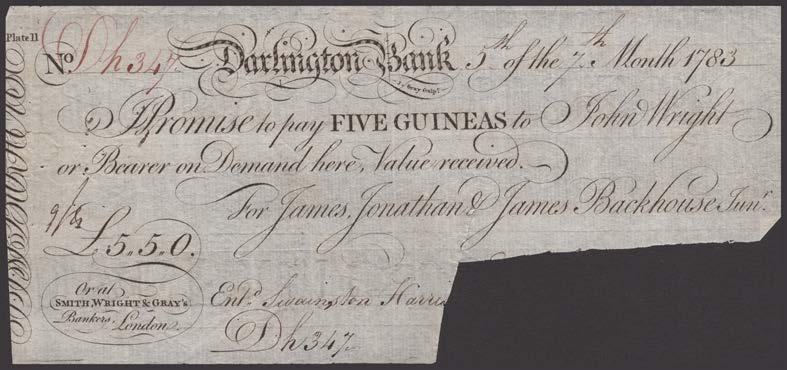 Plate 11
No. Dh347 Darlington Bank 5th of the 7th Month 1783
I Promise to pay FIVE GUINEAS to John Wright
or Bearer on Demand here, Value received.
For James, Jonathan & James Backhouse Junr.
£5,,5,,0.
Or at
SMITH, WRIGHT & GRAY'S
Bankers, London.
Entd. Swainston Harris
Dh347